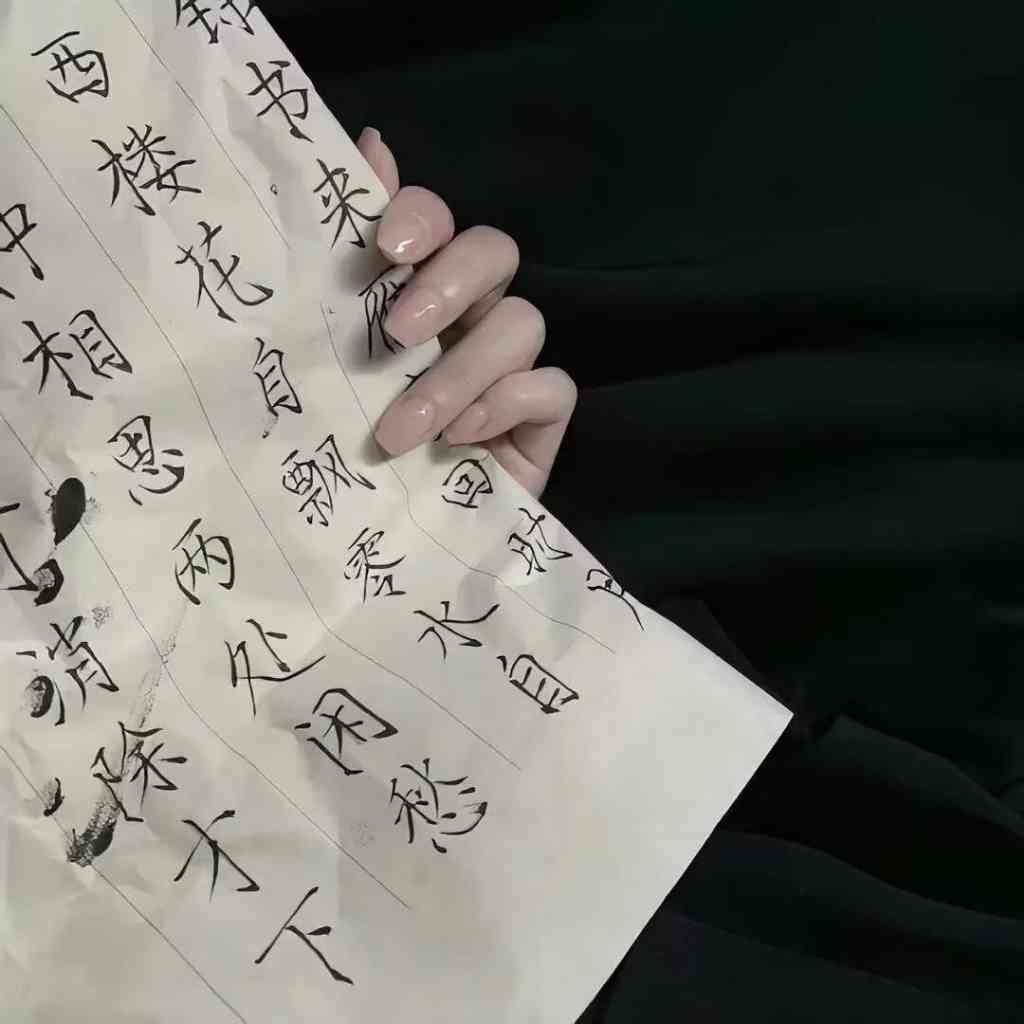 锦书来雁回时月
西楼花自飘零水自
种相思两处闲愁
消除才下